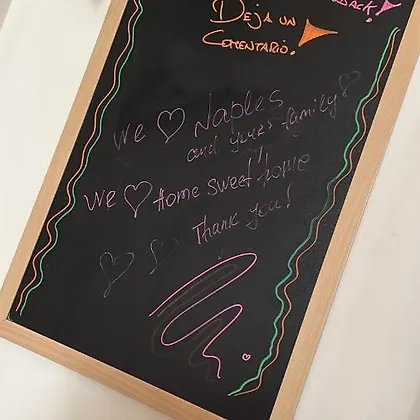 DEJA UN
COMENTARIO.
We ♡ Naples
and yours family ♡
We ♡ Home sweet home
Thank you!